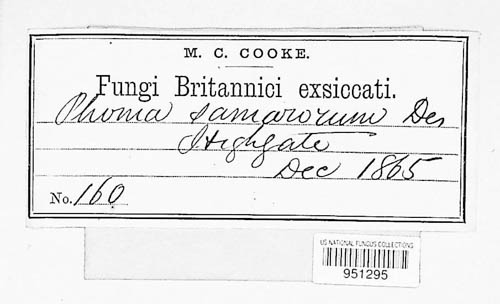 M. C. COOKE.
Fungi Britannici exsiccati.
Phoma samarorum Des
Highgate
Dec 1865
No. 160
US NATIONAL FUNGUS COLLECTIONS
951295